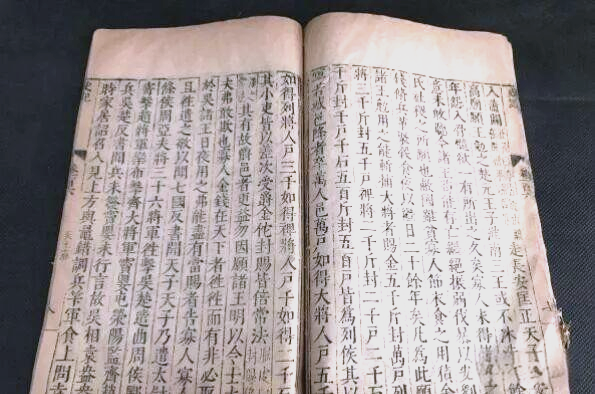 入蕭關走長安匡正天子以安
高廟願王勉之楚元王子淮南三王或不沐洗十餘
年怨入骨髓欲一有所出之久矣寡人未得諸
意未敢聽今諸王苟能存亡繼絕振弱伐暴以安劉
氏社稷之所願也敝國雖貧寡人節衣食之用積金
錢脩兵革聚穀食夜以繼日三十餘年矣凡為此願
諸王勉用之能斬捕大將者賜金五千斤封萬戶列
將三千斤封五千戶裨將二千斤封二千戶二千
千斤封千戶千石五百斤封五百戶皆為列侯其以
軍若城邑降者卒萬人邑萬戶如得大將人戶五千
如得列將人戶三千如得裨將人戶千如得二千
其小吏皆以差次受爵金佗封賜皆倍常法
其有故爵邑者更益勿因願諸王明以令士
夫弗敢欺也寡人金錢在天下者往往而有非必取
於吳諸王日夜用之弗能盡有當賜者告寡人寡人
且往遺之敬以聞七國反書聞天子天子乃遣太尉
條侯周亞夫將三十六將軍往擊吳楚遣曲周侯酈
寄擊趙將軍欒布擊齊大將軍竇嬰屯滎陽監齊
兵吳楚反書聞兵未發竇嬰未行言故吳相袁盎盎
時家居詔召入見上方與鼂錯調兵筭軍食上問